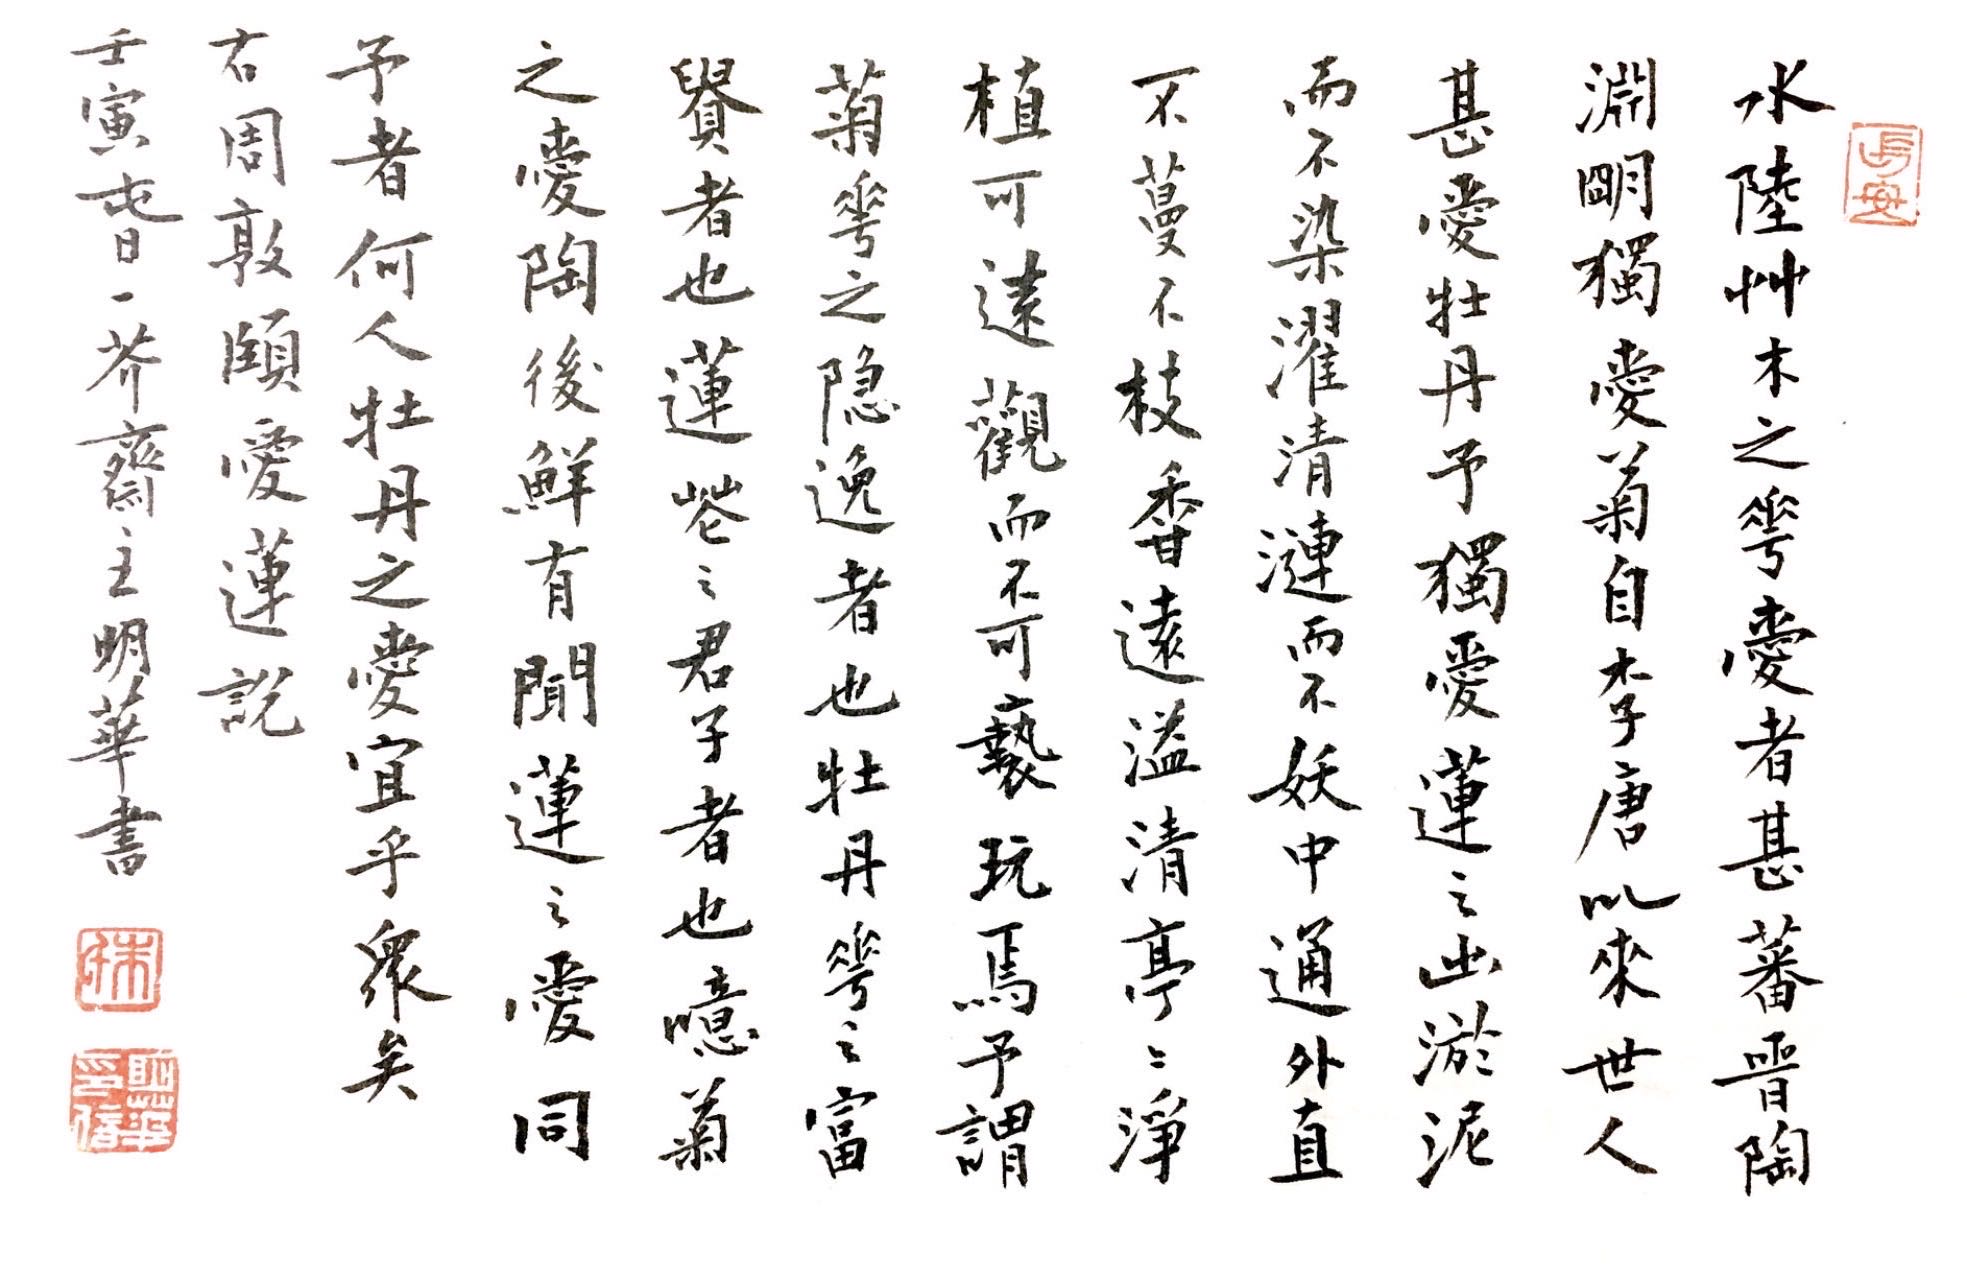 長安
水陸艸木之華愛者甚蕃晉陶
淵明獨愛菊自李唐以來世人
甚愛牡丹予獨愛蓮之出淤泥
而不染濯清漣而不妖中通外直
不蔓不枝香遠溢清亭〻淨
植可遠觀而不可褻玩焉予謂
菊華之隐逸者也牡丹華之富
貴者也蓮花之君子者也噫菊
之愛陶後鮮有聞蓮之愛同
予者何人牡丹之愛宜乎眾矣
右周敦頤愛蓮說
壬寅春日一芥齋主明華書
朱
明華印信